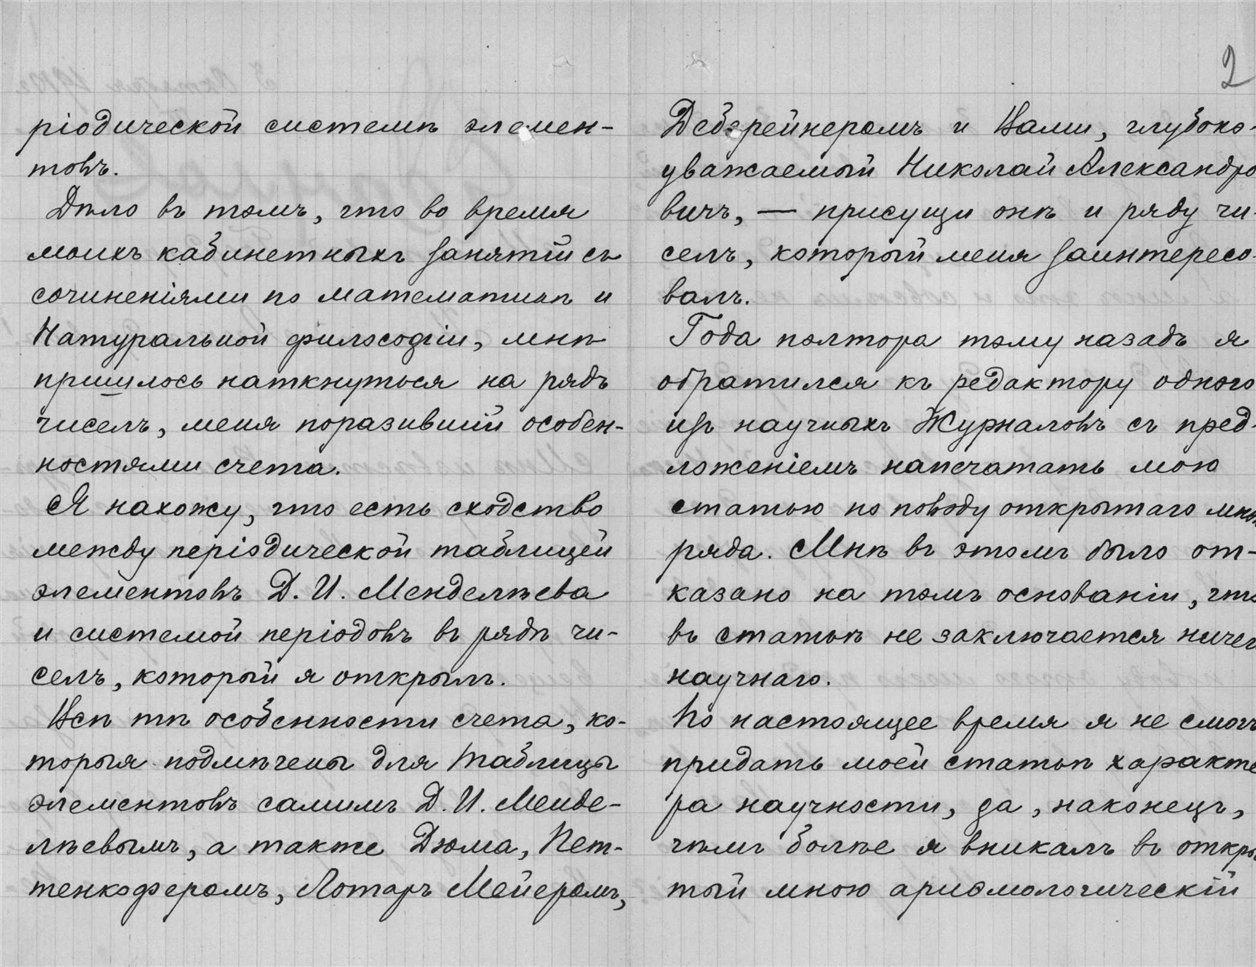 ріодической системѣ элемен-
товъ.
Дѣло въ томъ, что во время
моихъ кабинетныхъ занятій съ
сочиненіями по математикѣ и
Натуральной философіи, мнѣ
пришлось наткнуться на рядъ
чиселъ, меня поразившій особен-
ностями счета.
Я нахожу, что есть сходство
между періодической таблицей
элементовъ Д. И. Менделѣева
и системой періодовъ въ рядѣ чи-
селъ, который я открылъ.
Всѣ тѣ особенности счета, ко-
торыя подмѣчены для таблицы
элементовъ самимъ Д. И. Менде-
лѣевымъ, а также Дюма, Пет-
тенкоферомъ, Лотаръ Мейеромъ,
2
Деберейнеромъ и Вами, глубоко-
уважаемый Николай Александро
вичъ, — присущи онѣ и ряду чи-
селъ, который меня заинтересо-
валъ.
Года полтора тому назадъ я
обратился къ редактору одного
изъ научныхъ Журналовъ съ пред-
ложеніемъ напечатать мою
статью по поводу открытаго мною
ряда. Мнѣ въ этомъ было от-
казано на томъ основаніи, что
въ статьѣ не заключается ничег
научнаго.
По настоящее время я не смогъ
придать моей статьѣ характе
ра научности, да, наконецъ,
чѣмъ болѣе я вникалъ въ откры
тый мною ариѳмологическій